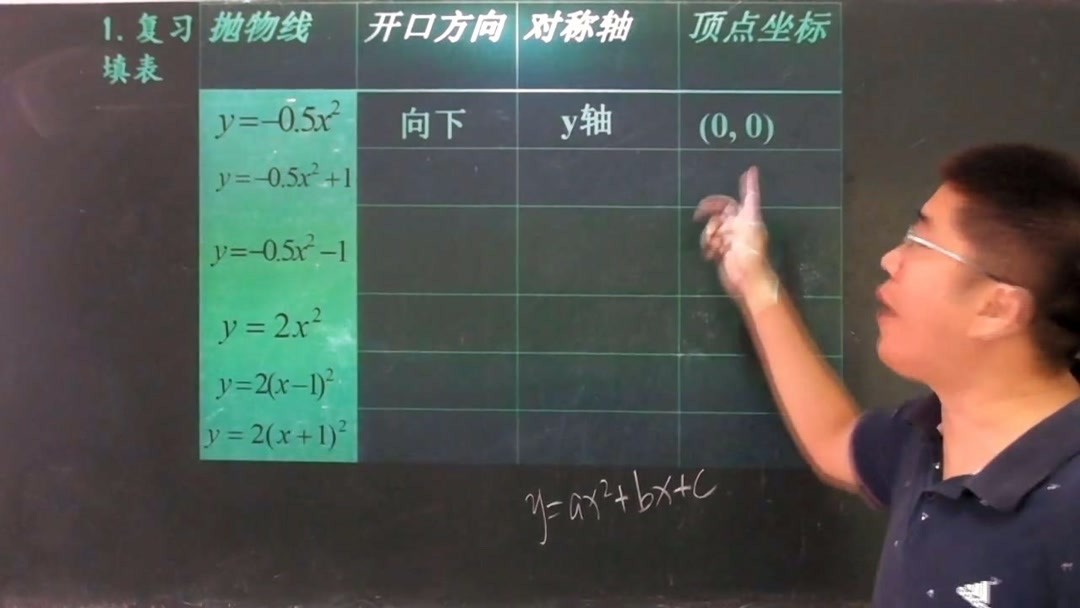 1. 复习 抛物线 开口方向 对称轴 顶点坐标
填表
y=-0.5x² 向下 y轴 (0, 0)
y=-0.5x²+1
y=-0.5x²-1
y = 2x²
y=2(x-1)²
y = 2(x+1)²
y=ax²+bx+c